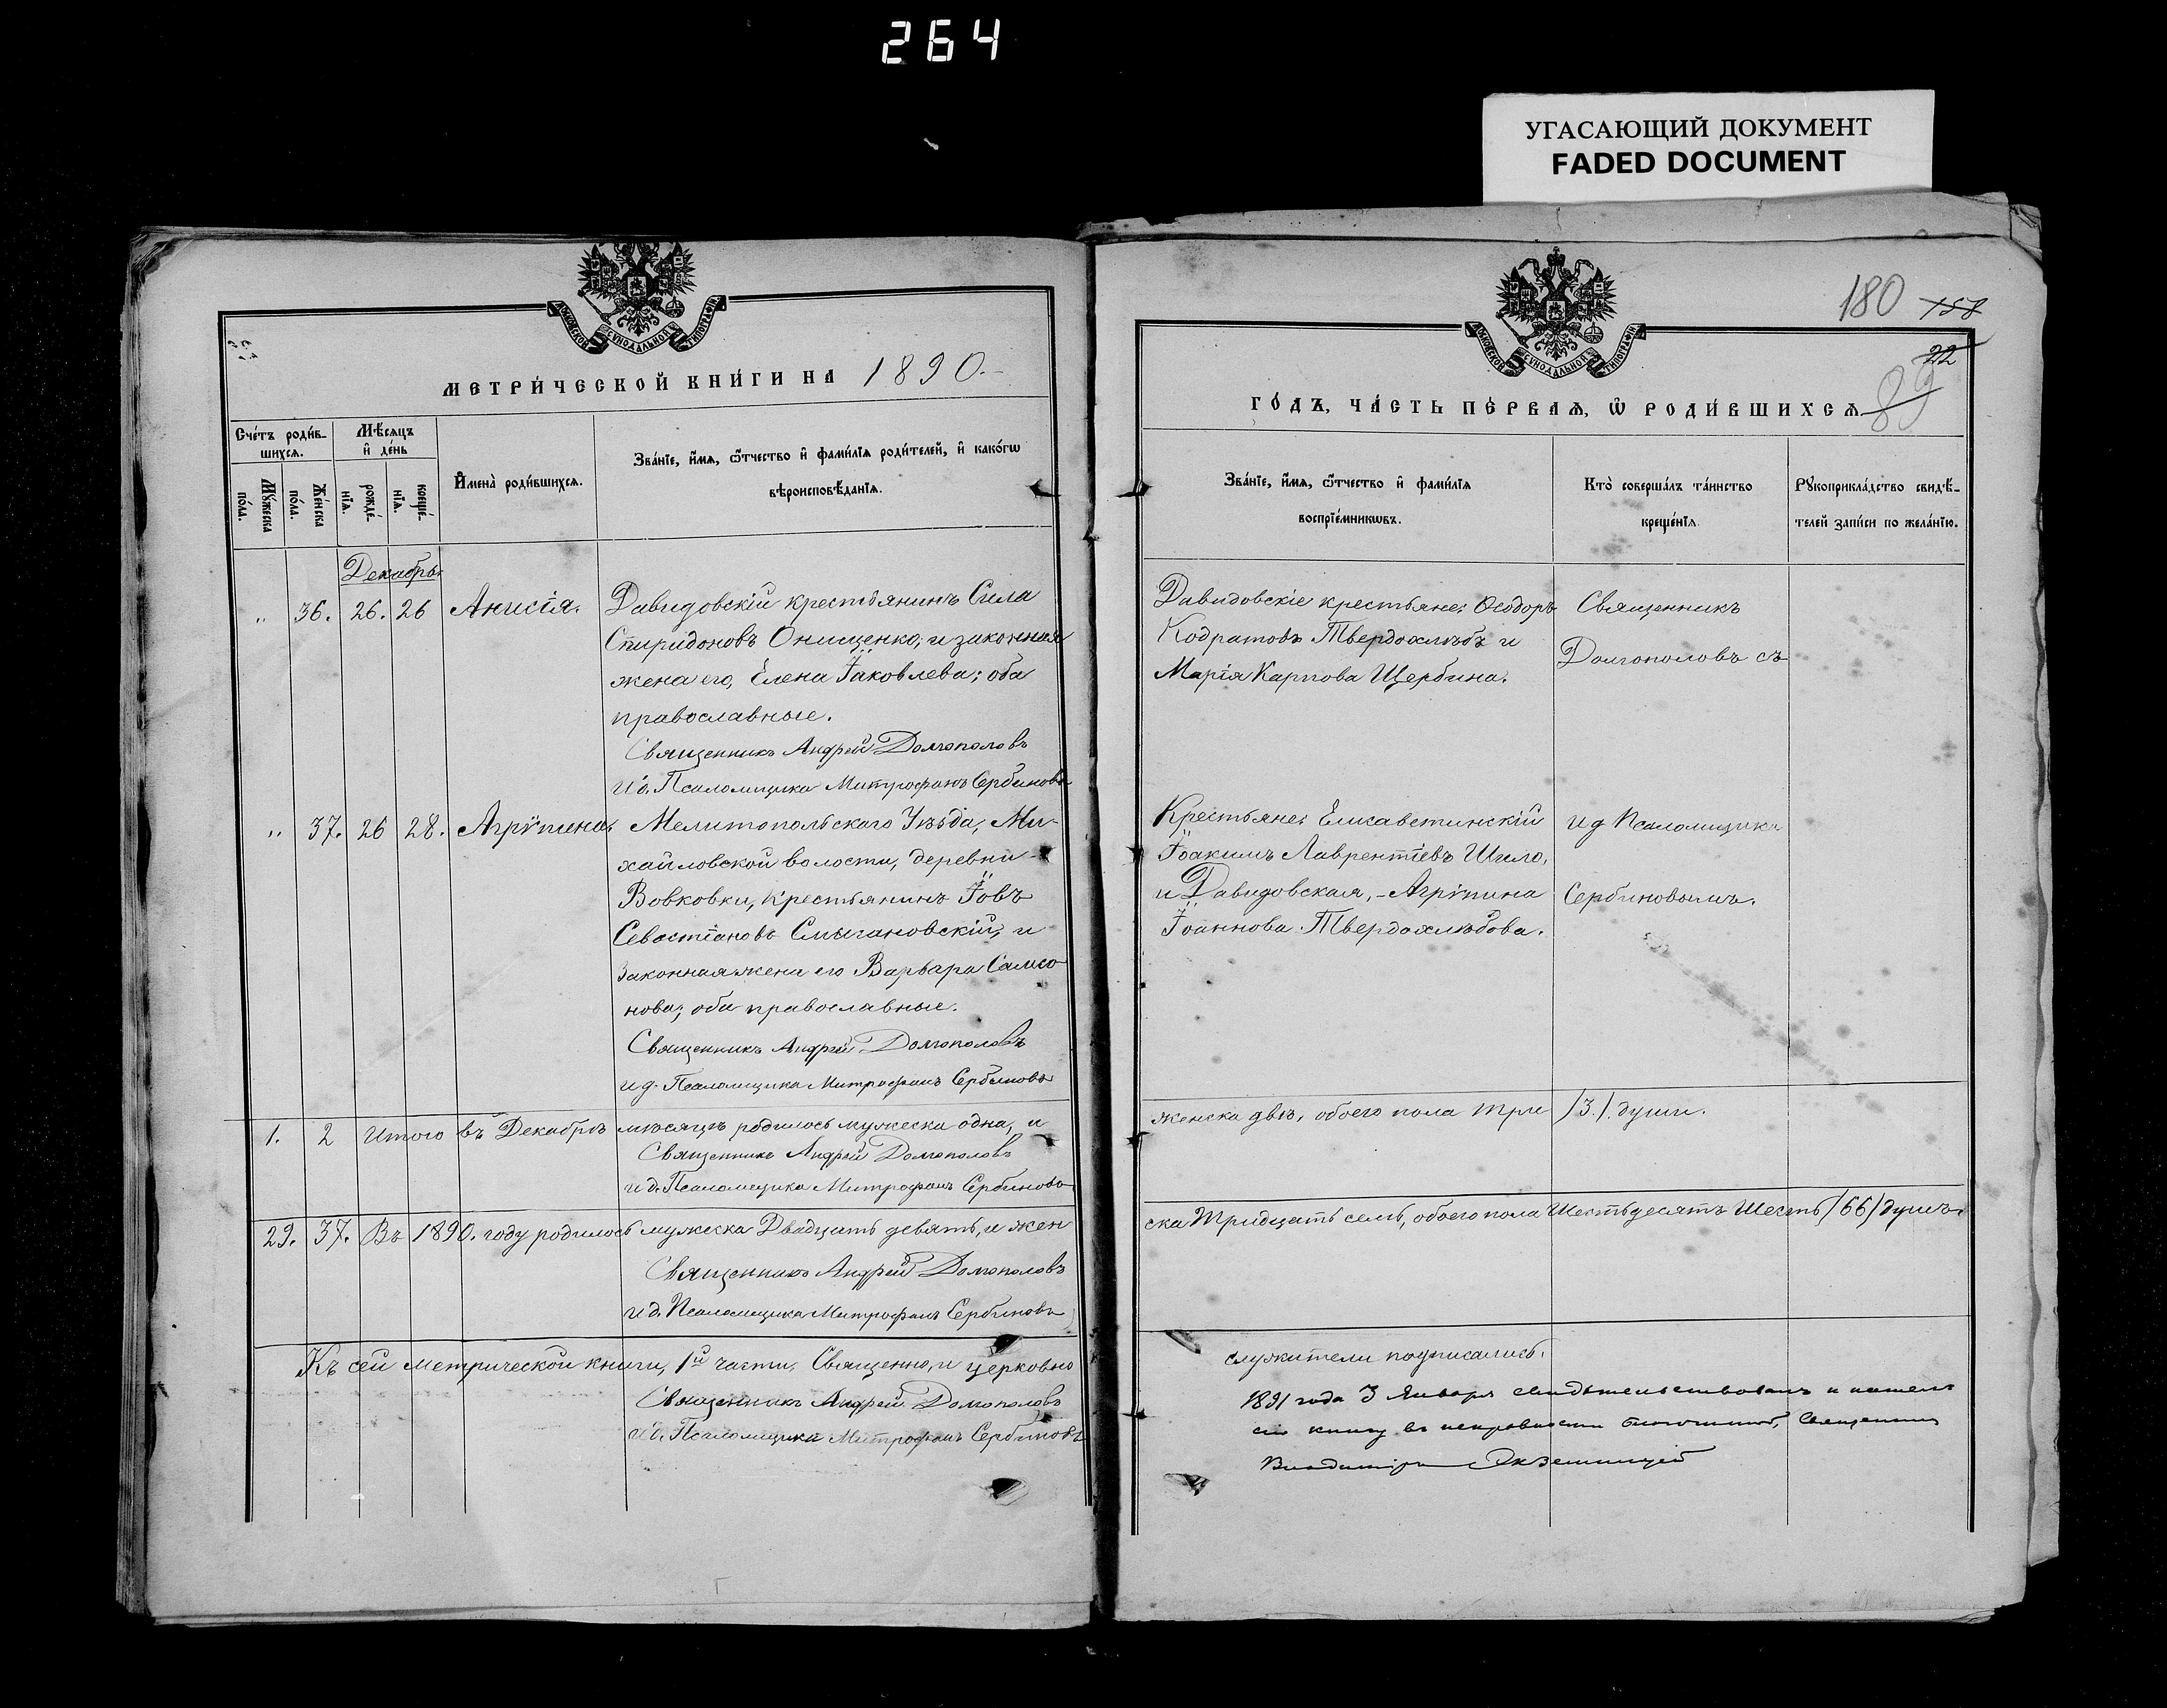 264
УГАСАЮЩИЙ ДОКУМЕНТ
FADED DOCUMENT
МОСКОВСКОЙ СѴНОДАЛЬНОЙ ТИПОГРАФІИ
МЕТРИ́ЧЕСКОЙ КНИ́ГИ НА 1890.
Сче́тъ роди́в-
шихся.
Мѣ́сяцъ
и҆ де́нь
Мꙋ́жеска по́ла.
Же́нска по́ла.
рожде́-
нїѧ.
креще́-
нїѧ.
И҆мена̀ роди́вшихсѧ.
Зва́нїе, и҆́мѧ, ѻ҆́тчество и҆ фами́лїѧ роди́телей, и҆ како́гѡ
вѣроисповѣ́данїѧ.
Декабрь
" 36. 26. 26 Анисія. Давидовскій крестьянинъ Сила
Спиридоновъ Онищенко, и законная
жена его, Елена Іаковлева; оба
православные.
Священникъ Андрей Долгополовъ
И д. Псаломщика Митрофанъ Сербиновъ
" 37. 26 28. Агрѵпена. Мелитопольскаго Уѣзда, Ми-
хайловской волости, деревни
Вовковки, крестьянинъ Іовъ
Севастіановъ Смыгановскій, и
законная жена его Варвара Самсо
нова; оба православные.
Священникъ Андрей Долгополовъ
и д. Псаломщика Митрофанъ Сербиновъ
1. 2 Итого въ Декабрѣ мѣсяцѣ родилось мужеска одна, и
Священникъ Андрей Долгополовъ
и д. Псаломщика Митрофанъ Сербиновъ
29. 37. Въ 1890. году родилось мужеска Двадцать девять, и жен
Священникъ Андрей Долгополовъ
и д. Псаломщика Митрофанъ Сербиновъ
Къ сей метрической книги, 1й части, Священно, и церковно
Священникъ Андрей Долгополовъ
и д. Псаломщика Митрофанъ Сербиновъ
МОСКОВСКОЙ СѴНОДАЛЬНОЙ ТИПОГРАФІИ
180 158
22
89
ГО́ДЪ, ЧА́СТЬ ПЕ́РВАѦ, Ѽ РОДИ́ВШИХСѦ
Зва́нїе, и҆́мѧ, ѻ҆́тчество и҆ фами́лїѧ
воспрїе́мникѡвъ.
Кто̀ соверша́лъ та́инство
креще́нїѧ
Рꙋкоприкла́дство свидѣ́-
телей за́писи по жела́нїю.
Давидовскіе крестьяне: Ѳеодоръ
Кодратовъ Твердохлѣбъ и
Марія Карпова Щербина.
Священникъ
Долгополовъ съ
Крестьяне: Елисаветинскій
Іоакимъ Лаврентіевъ Шило,
и Давидовская, - Агрѵпина
Іоаннова Твердохлѣбова.
и д Псаломщика
Сербиновымъ.
женска двѣ, обоего пола три /3./ души.
ска Тридцать семь, обоего пола Шестьдесятъ Шесть /66/ душъ.
служители подписались.
1891 года 3 Января свидѣтельствовалъ и нашелъ
сію книгу въ исправности благочинный, Священникъ
Владиміръ